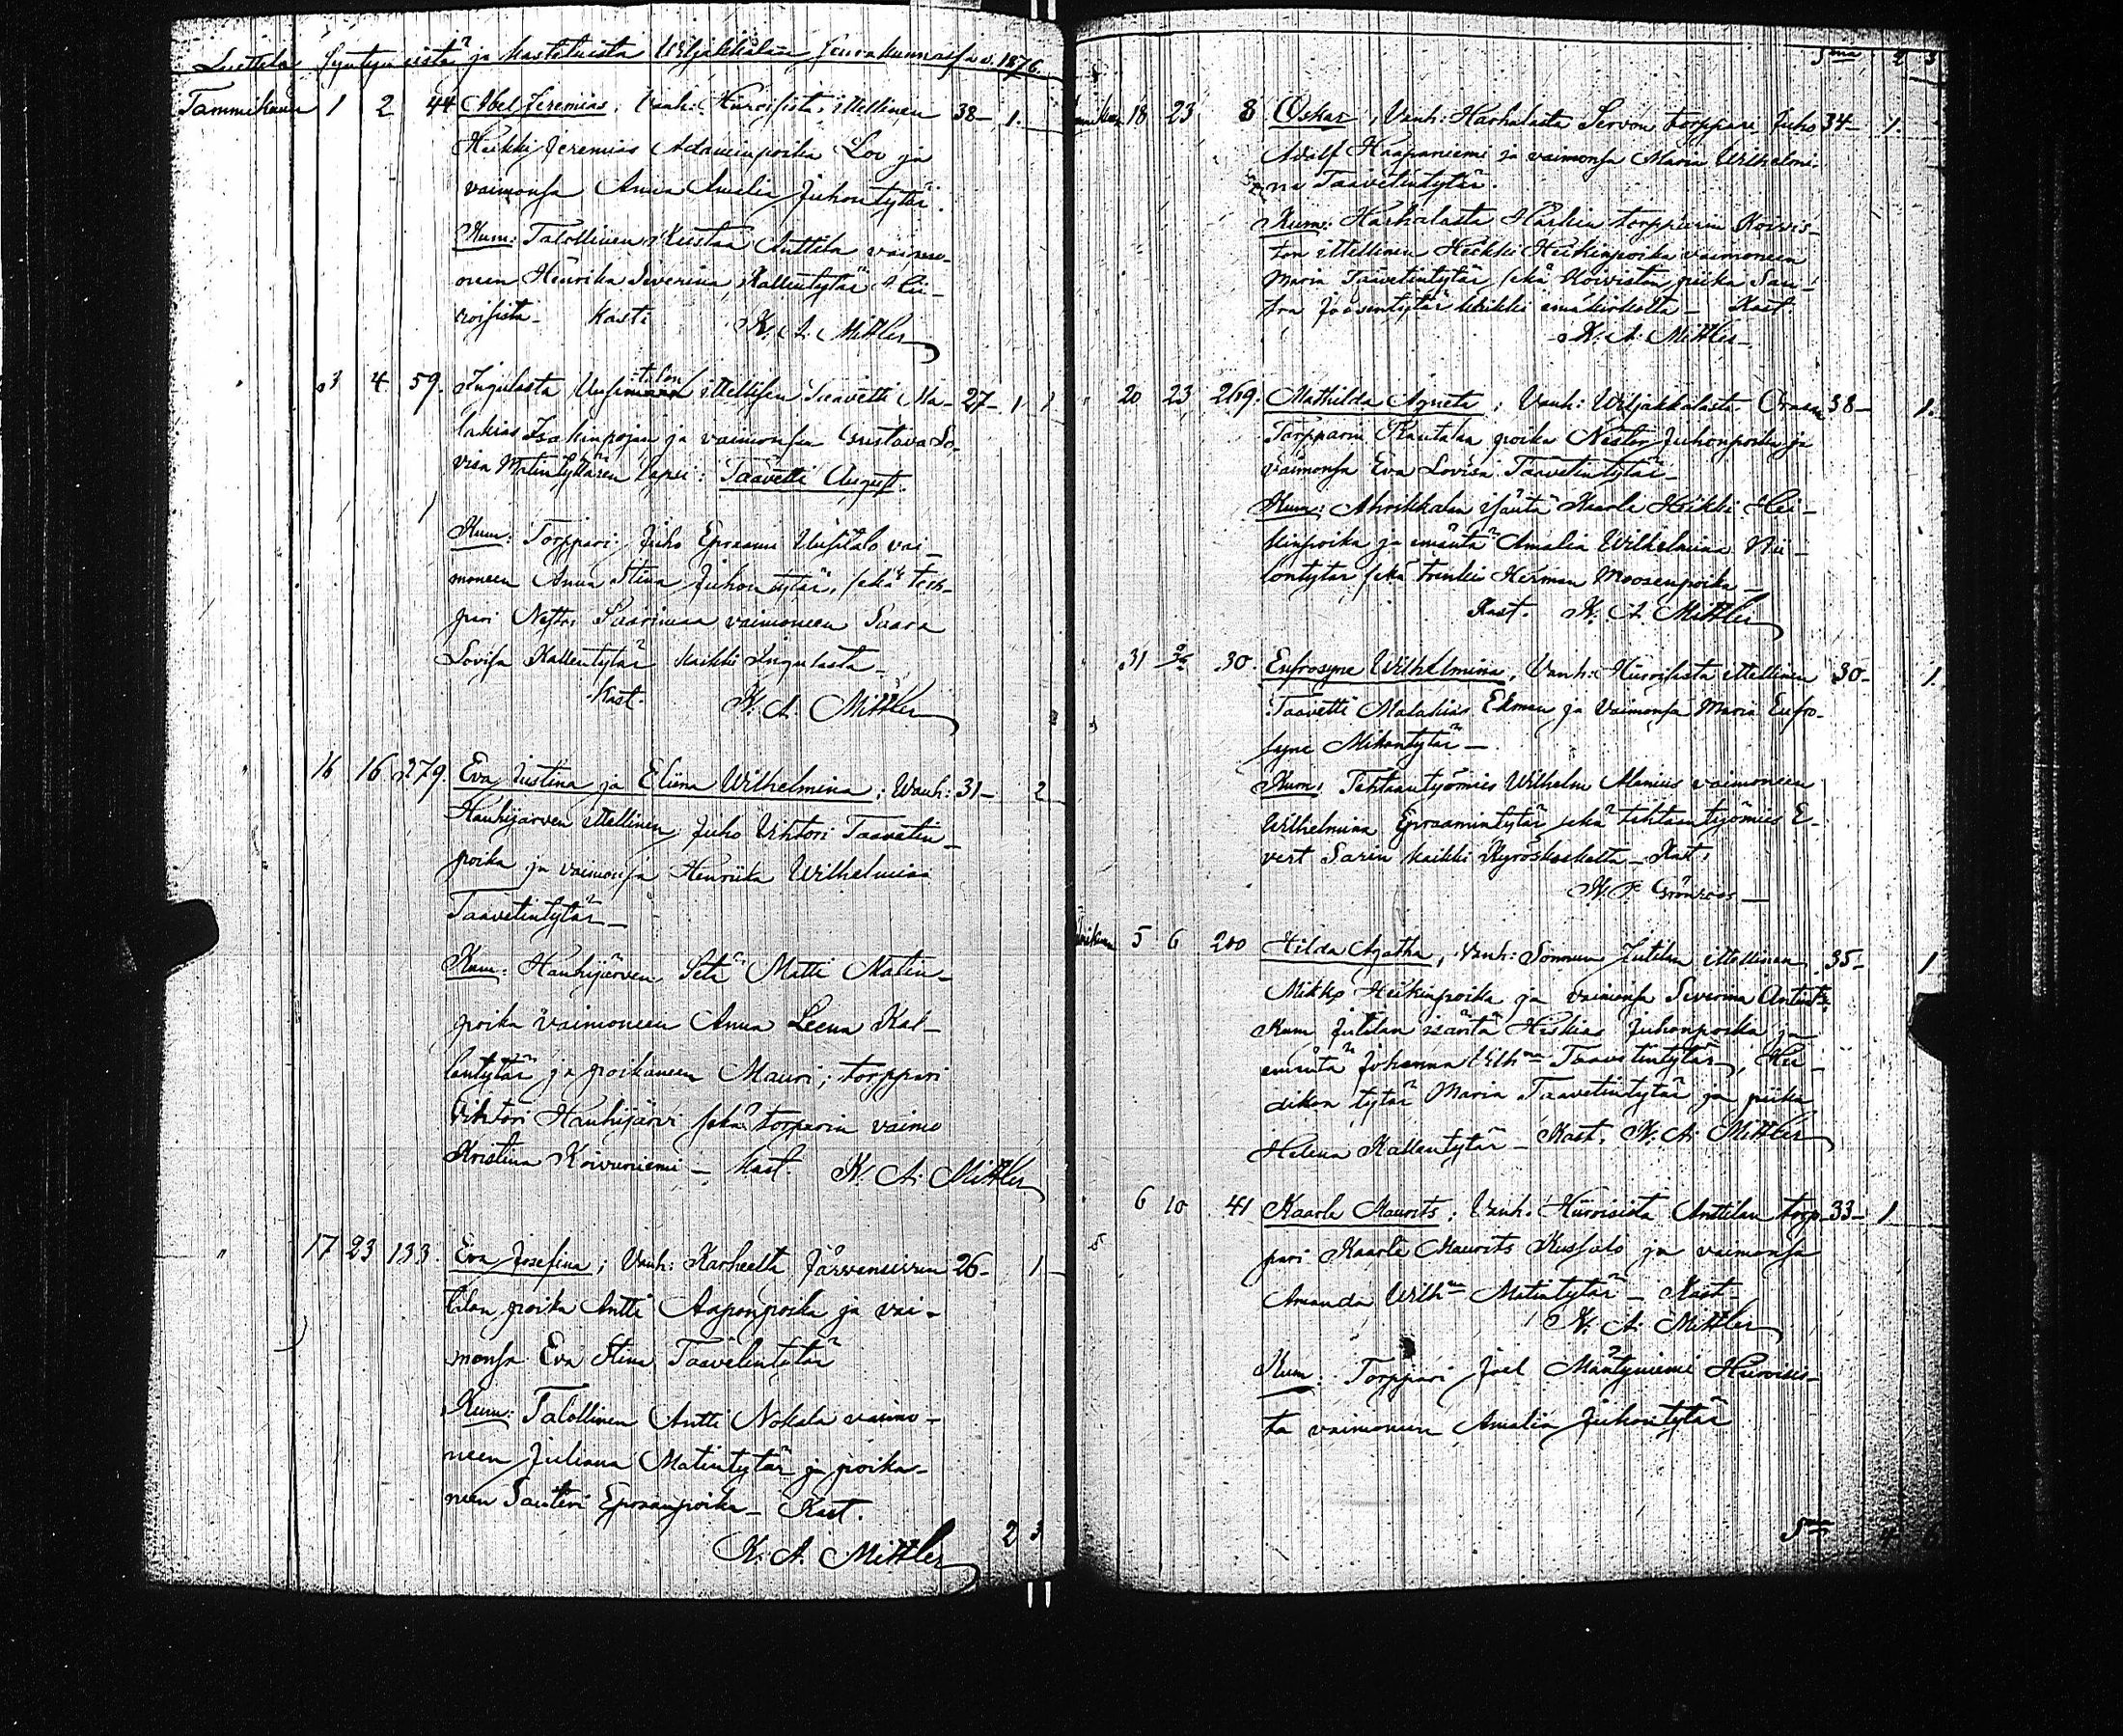 Luettelo syntyneistä ja kastetuista Wiljakkalan seurakunnassa v. 1876.
Tammikuun 1 2 44 Abel Jeremias; Vanh: Hiiroisista ittellinen 38- 1.
Heikki Jeremias Adaminpoika Loo ja
vaimonsa Anna Amalia Juhontytär.
Kum: Talollinen Kustaa Anttila vaimo-
neen Henrika Severina Kallentytär Hii-
roisista - Kast. K. A. Mittler
3 4 59. Ingulasta Uusitalon ittellisen Taavetti Ma- 27- 1
lakias Isakinpojan ja vaimonsa Gustava Lo-
visa Matintyttären lapsi: Taavetti August.
Kum: Torppari Juho Epraam Uusitalo vai-
moneen Anna Stina Juhontytär, sekä torp-
pari Nestor Saarimaa vaimoneen Saara
Lovisa Kallentytär kaikki Ingulasta -
Kast. K. A. Mittler
16 16 279. Eva Justina ja Eliina Wilhelmina; Vanh: 31- 2
Hanhijärven ittellinen Juho Vihtori Taavetin-
poika ja vaimonsa Henriika Wilhelmina
Taavetintytär -
Kum: Hanhijärven Matti Matin-
poika vaimoneen Anna Leena Kal-
lentytär ja poikaneen Mauri; torppari
Vihtori Hanhijärvi sekä torpparin vaimo
Kristina Koivuniemi - Kast. K. A. Mittler
" 17 23 133. Eva Josefina; Vanh: Karheelta Järvensivun 26- 1
tilan poika Antti Aaponpoika ja vai-
monsa Eva Stina Taavetintytär
Kum: Talollinen Antti Nokala vaimo-
neen Juliana Matintytär ja poika-
neen Santeri - Kast.
K. A. Mittler 2 3
Sma 2 3
18 23 8 Oskar; Vanh: Harhalasta Servon torppari Juho 34- 1.
Adolf Haapaniemi ja vaimonsa Maria Wilhelmi-
na Taavetintytär.
Kum: Harhalasta Härkin torpparin Koivis-
ton ittellinen Heikki Heikinpoika vaimoneen
Maria Taavetintytär sekä Koiviston piika San-
fra Joosentytär kaikki emäkirkolta - Kast.
K. A. Mittler -
20 23 269. Mathilda Agneta; Vanh: Wiljakkalasta 38- 1.
Torpparin Rautalan poika Nestor Juhonpoika ja
vaimonsa Eva Lovisa Taavetintytär -
Kum: isäntä Kaarle Heikki Hei-
kinpoika ja emäntä Amalia Wilhelmina Nii-
lontytär sekä trenki Herman Moosenpoika -
Kast. K. A. Mittler
31 30. Eufrosyne Wilhelmina; Vanh: Hiiroisista ittellinen 30- 1.
Taavetti Malakias Ekman ja Vaimonsa Maria Eufro-
syne Mikontytär -
Kum: Tehtaantyömies Wilhelm Manius vaimoneen
Wilhelmina Epraamintytär sekä tehtaantyömies E-
vert Sarin kaikki Kyröskoskelta - Kast.
K. F. Grönroos -
5 6 200 Hilda Agatha; Vanh: Sommun Jutilan ittellinen 35- 1
Mikko Heikinpoika ja vaimonsa Severina
Kum Jutilan isäntä Hiskias Juhonpoika ja
emäntä Johanna Wilhna Taavetintytär, Hei-
dikan tytär Maria Taavetintytär ja piika
Helena Kallentytär - Kast. K. A. Mittler
6 10 41 Kaarle Maurits; Vanh: Hiiroisista Anttilan torp- 33- 1
pari Kaarle Maurits Kussalo ja vaimonsa
Amanda Wilhna Matintytär - Kast -
K. A. Mittler
Kum: Torppari Joel Mäntyniemi Hiirois-
ta vaimoneen Amalia Juhontytär
Sma 4 6